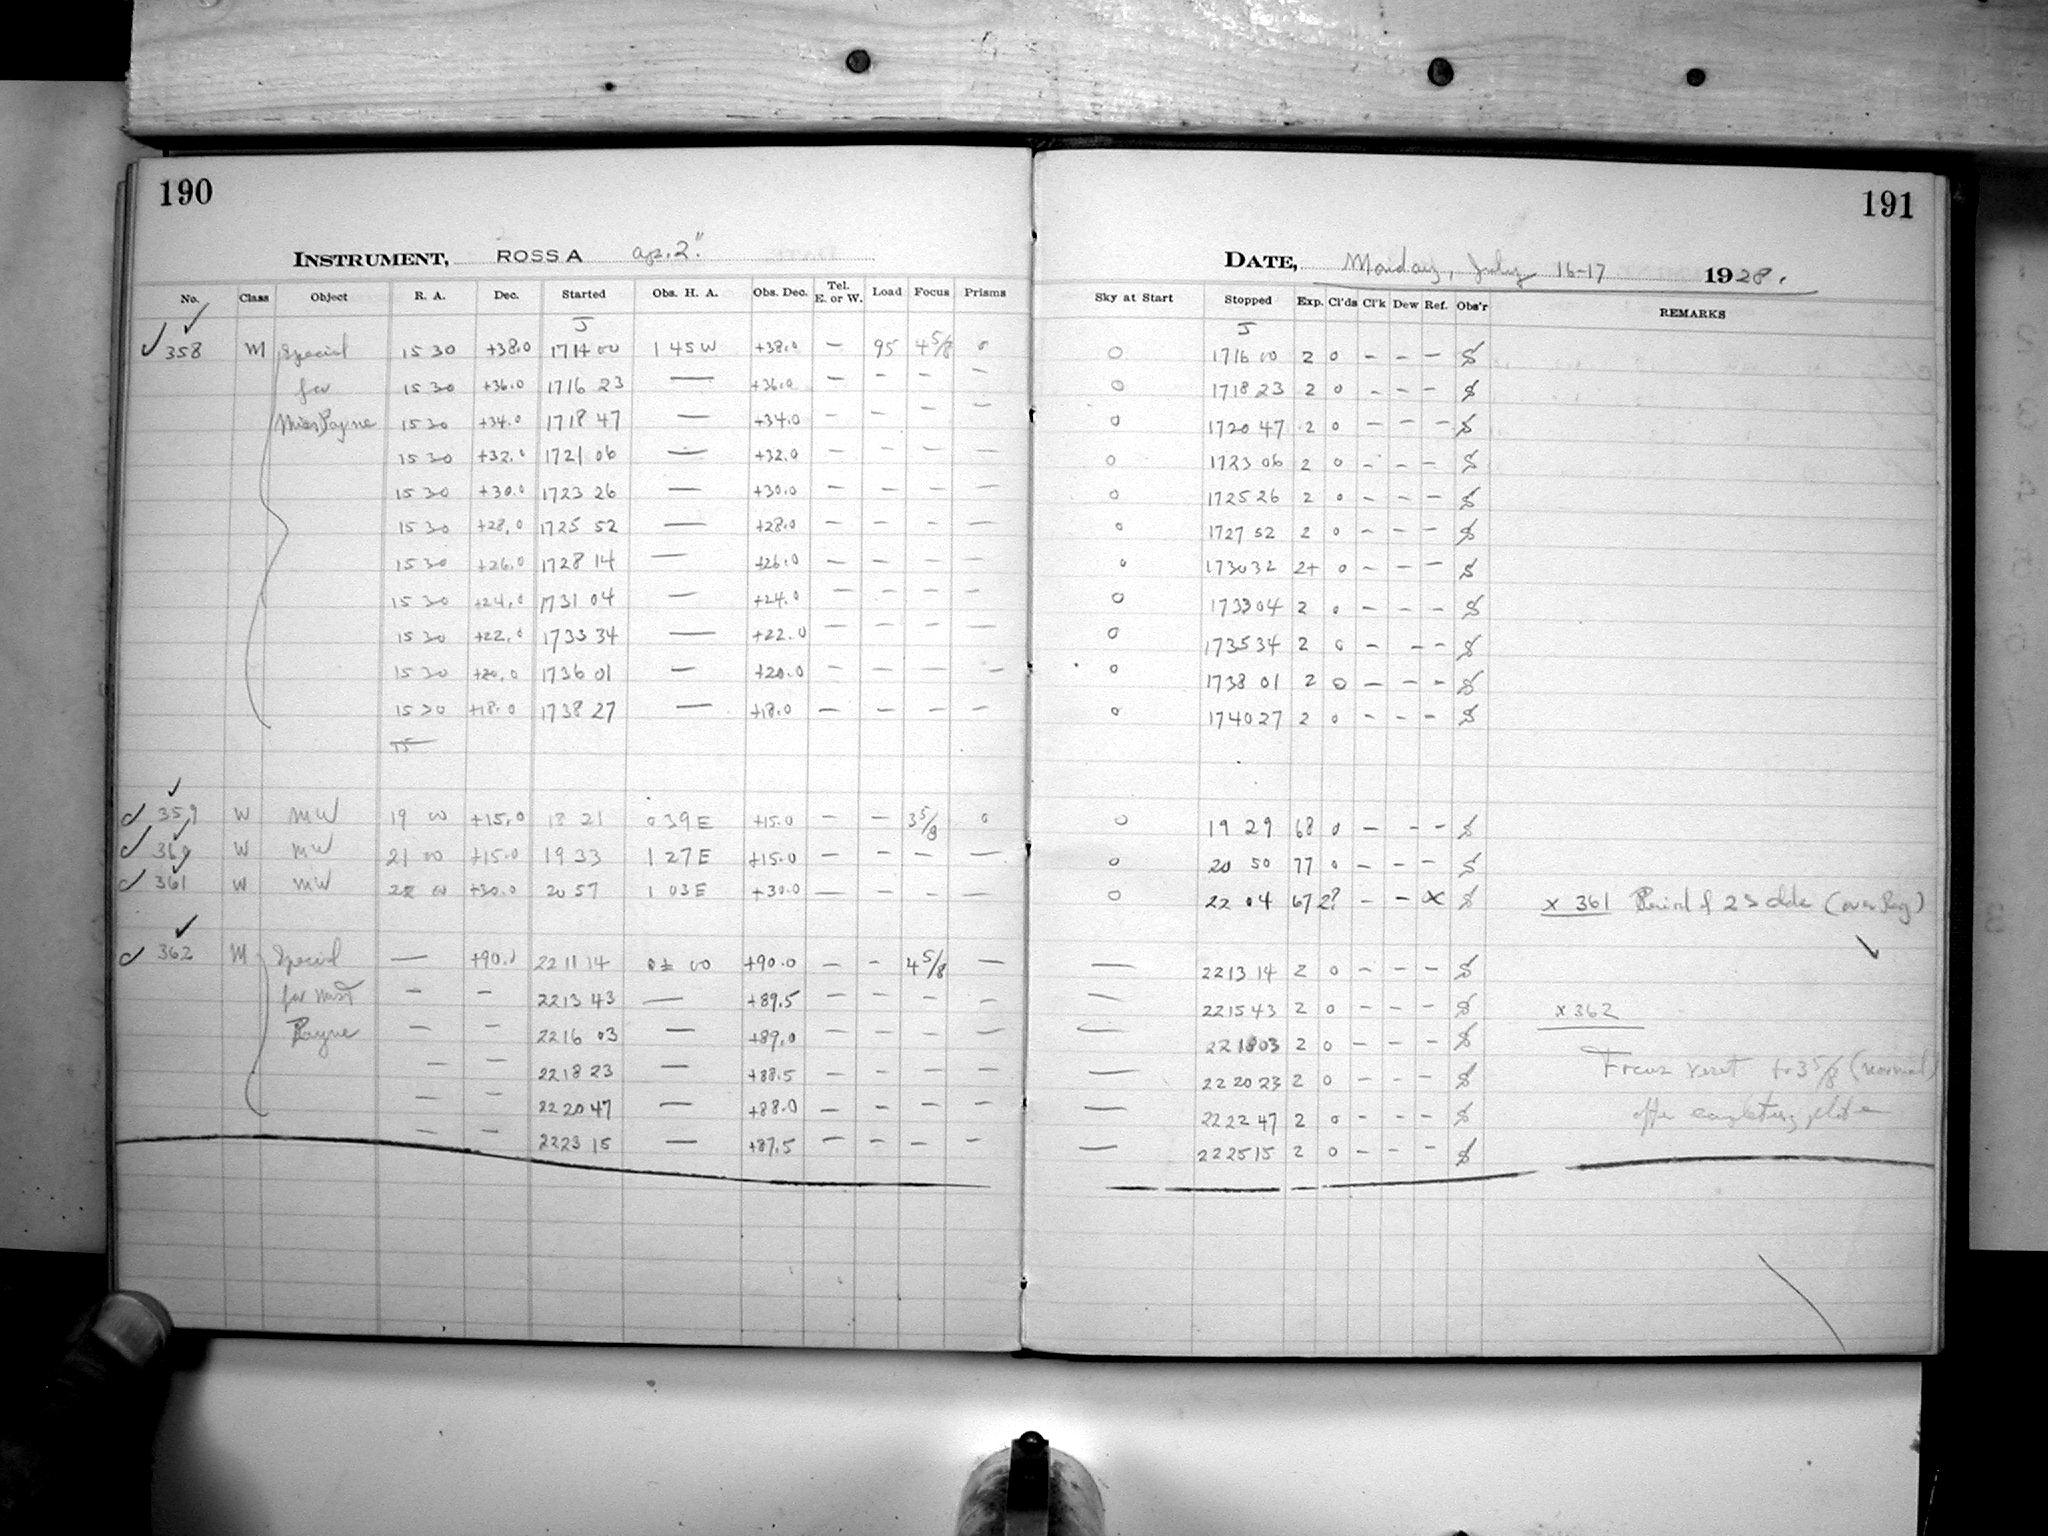 190
INSTRUMENT, ROSS A ap. 2"
No. Class Object R. A. Dec. Started Obs. H. A. Obs. Dec. Tel. E. or W. Load Focus Prisms
J
358 M Special 15 30 +38.0 17 14 00 1 45 W +38.0 — 95 4 5/8 0
for 15 30 +36.0 17 16 23 — +36.0 — — — —
Miss Payne 15 30 +34.0 17 18 47 — +34.0 — — — —
15 30 +32.0 17 21 06 — +32.0 — — — —
15 30 +30.0 17 23 26 — +30.0 — — — —
15 30 +28.0 17 25 52 — +28.0 — — — —
15 30 +26.0 17 28 14 — +26.0 — — — —
15 30 +24.0 17 31 04 — +24.0 — — — —
15 30 +22.0 17 33 34 — +22.0 — — — —
15 30 +20.0 17 36 01 — +20.0 — — — —
15 30 +18.0 17 38 27 — +18.0 — — — —
15
359 W MW 19 00 +15.0 18 21 0 39 E +15.0 — — 3 5/8 0
360 W MW 21 00 +15.0 19 33 1 27 E +15.0 — — — —
361 W MW 22 00 +30.0 20 57 1 03 E +30.0 — — — —
362 M Special — +90.0 22 11 14 0± 00 +90.0 — — 4 5/8 —
for Miss — — 22 13 43 — +89.5 — — — —
Payne — — 22 16 03 — +89.0 — — — —
— — 22 18 23 — +88.5 — — — —
— — 22 20 47 — +88.0 — — — —
— — 22 23 15 — +87.5 — — — —
191
DATE, Monday, July 16-17 1928.
Sky at Start Stopped Exp. Cl'ds Cl'k Dew Ref. Obs'r REMARKS
J
0 17 16 00 2 0 — — — S
0 17 18 23 2 0 — — — S
0 17 20 47 2 0 — — — S
0 17 23 06 2 0 — — — S
0 17 25 26 2 0 — — — S
0 17 27 52 2 0 — — — S
0 17 30 32 2+ 0 — — — S
0 17 33 04 2 0 — — — S
0 17 35 34 2 0 — — — S
0 17 38 01 2 0 — — — S
0 17 40 27 2 0 — — — S
0 19 29 68 0 — — — S
0 20 50 77 0 — — — S
0 22 04 67 2? — — X S x 361 Period of
— 22 13 14 2 0 — — — S
— 22 15 43 2 0 — — — S x 362
— 22 18 03 2 0 — — — S
— 22 20 23 2 0 — — — S Focus reset to 3 5/8 (normal)
— 22 22 47 2 0 — — — S after completing plate
— 22 25 15 2 0 — — — S